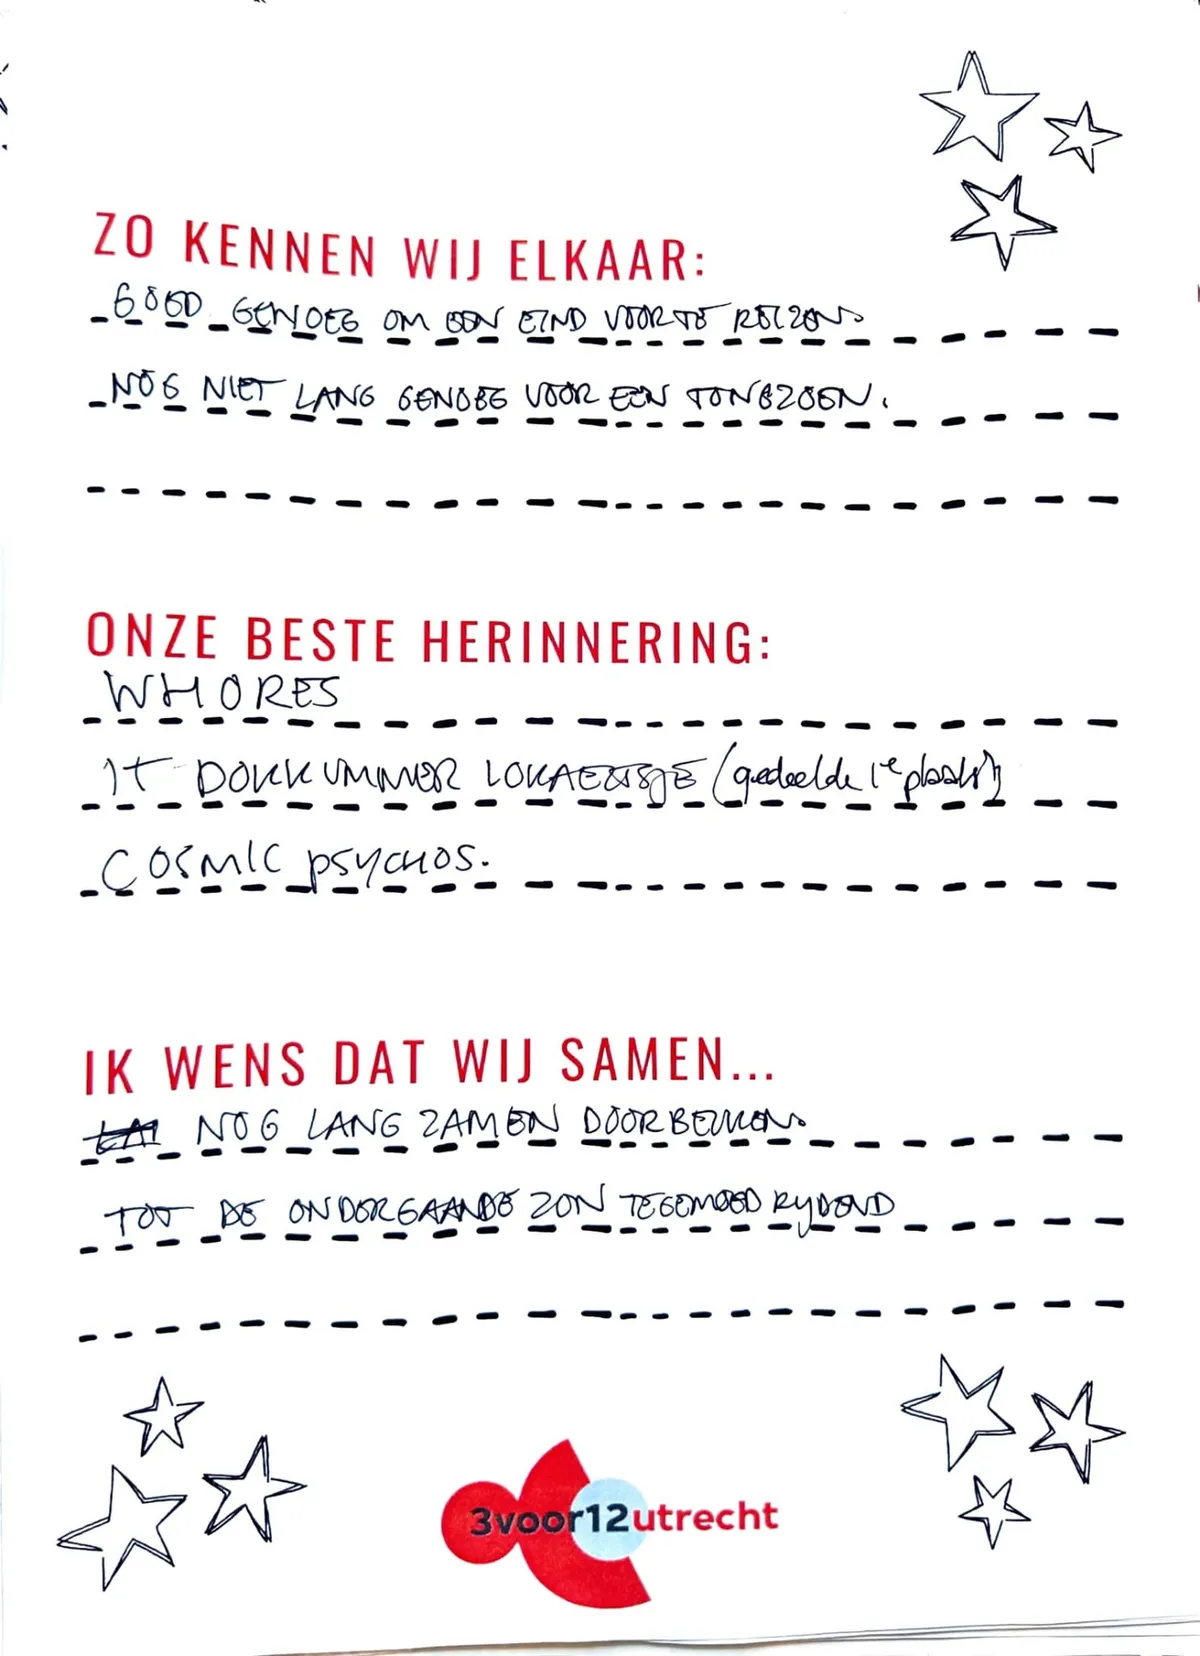 ZO KENNEN WIJ ELKAAR:
GOED GENOEG OM EEN EIND VOOR TE REIZEN.
NOG NIET LANG GENOEG VOOR EEN TONGZOEN.
ONZE BESTE HERINNERING:
WHORES
IT DOKKUMMER LOKAELTSJE (gedeelde 1e plaats)
COSMIC PSYCHOS.
IK WENS DAT WIJ SAMEN...
NOG LANG ZAMEN DOORBEUKEN.
TOT DE ONDERGAANDE ZON TEGEMOED RYDEND
3voor12utrecht